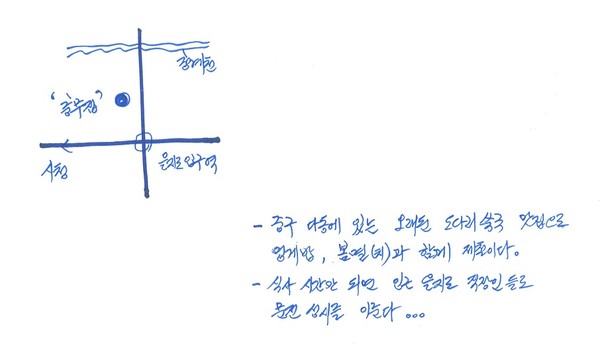 청계천
'충무집'
시청
을지로입구역
- 중구 다동에 있는 오래된 도다리쑥국 맛집으로
멍게밥, 봄멸(치)과 함께 제철이다.
- 식사 시간만 되면 인근 을지로 직장인들로
문전 성시를 이룬다...